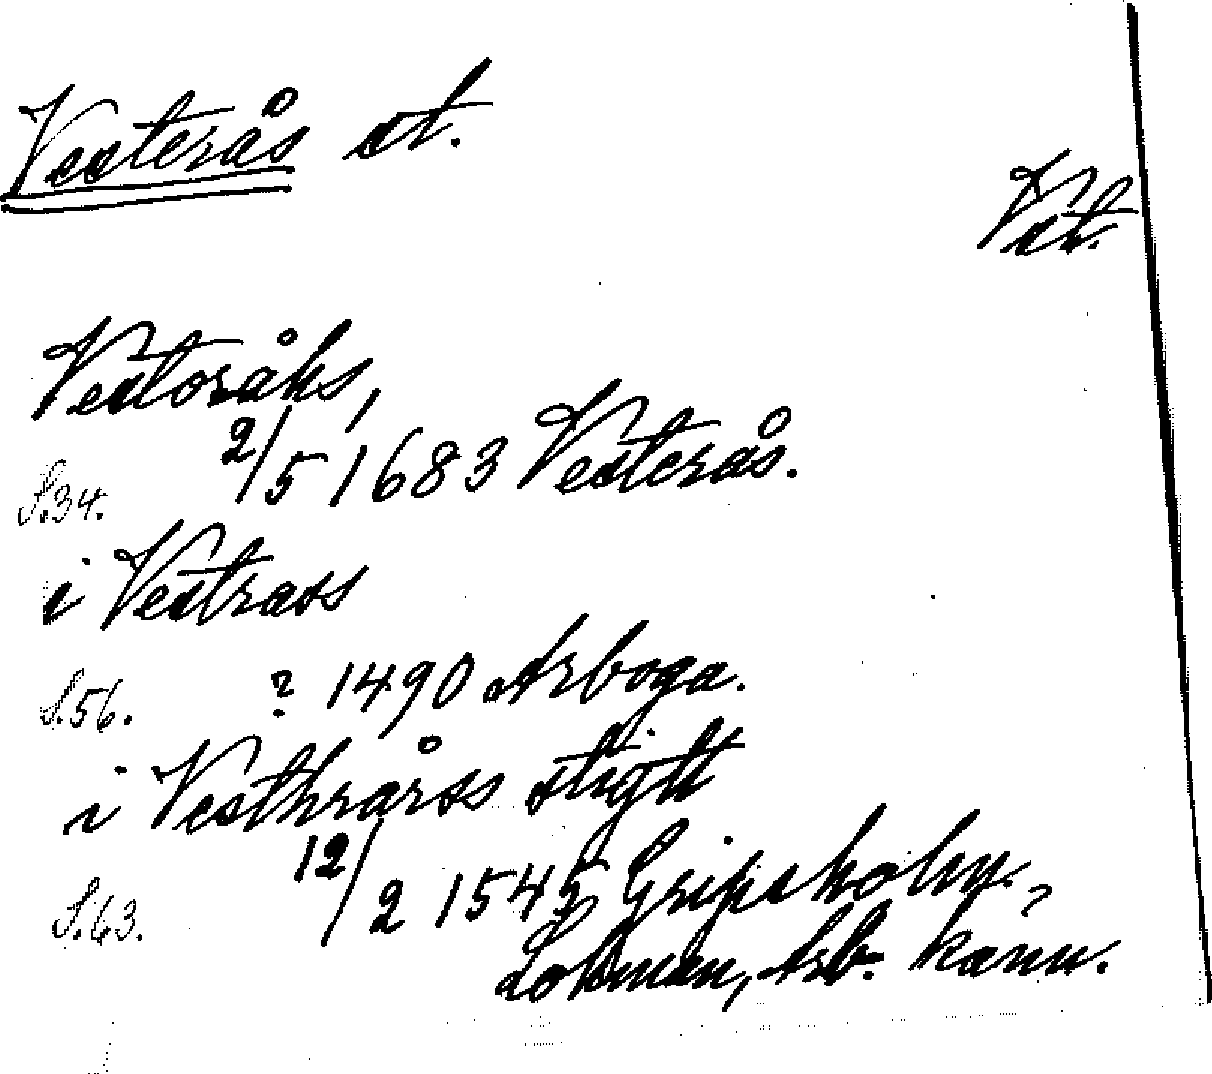 Vesterås st.
Vst.
Vestoråhs,
S.34. 2/5 1683 Vesterås.
i Vestrass
S.56. ? 1490 Arboga.
i Vesthrårss stigtt
S.63. 12/2 1545 Gripsholm.,
Lokman, Arb. kann.